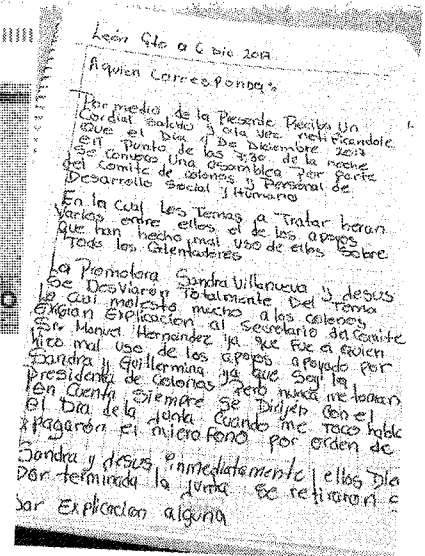 León Gto a 6 Dic 2017
Aquien Corresponda:
Por medio de la Presente Reciba Un
Cordial saludo y ala vez notificandole
Que el Dia 4 De Diciembre 2017
en Punto de las 7:30 de la noche
Se convoco Una asamblea por parte
del Comite de colonos y Personal de
Desarrollo Social y Humano
En la Cual Los Temas a Tratar heran
Varios entre ellos el de los apoyos
que han hecho mal uso de ellos Sobre
Todo los Calentadores
La Promotora Sandra Villanueva y Jesus
Se Desviaron Totalmente Del Tema
lo cual molesto mucho a los colonos
Exigian Explicación al Secretario del Comite
Sr. Manuel Hernandez ya que Fue el quien
hizo mal uso de los apoyos apoyado por
Sandra y Guillermina ya que Soy la
presidenta de Colonos pero nunca me toman
en Cuenta Siempre se Dirijen Con el
El Dia de la Junta Cuando me Toco habla
apagaron el microfono por orden de
Sandra y Jesus inmediatamente ellos Die
por terminada la Junta Se retiraron
Dar Explicación alguna